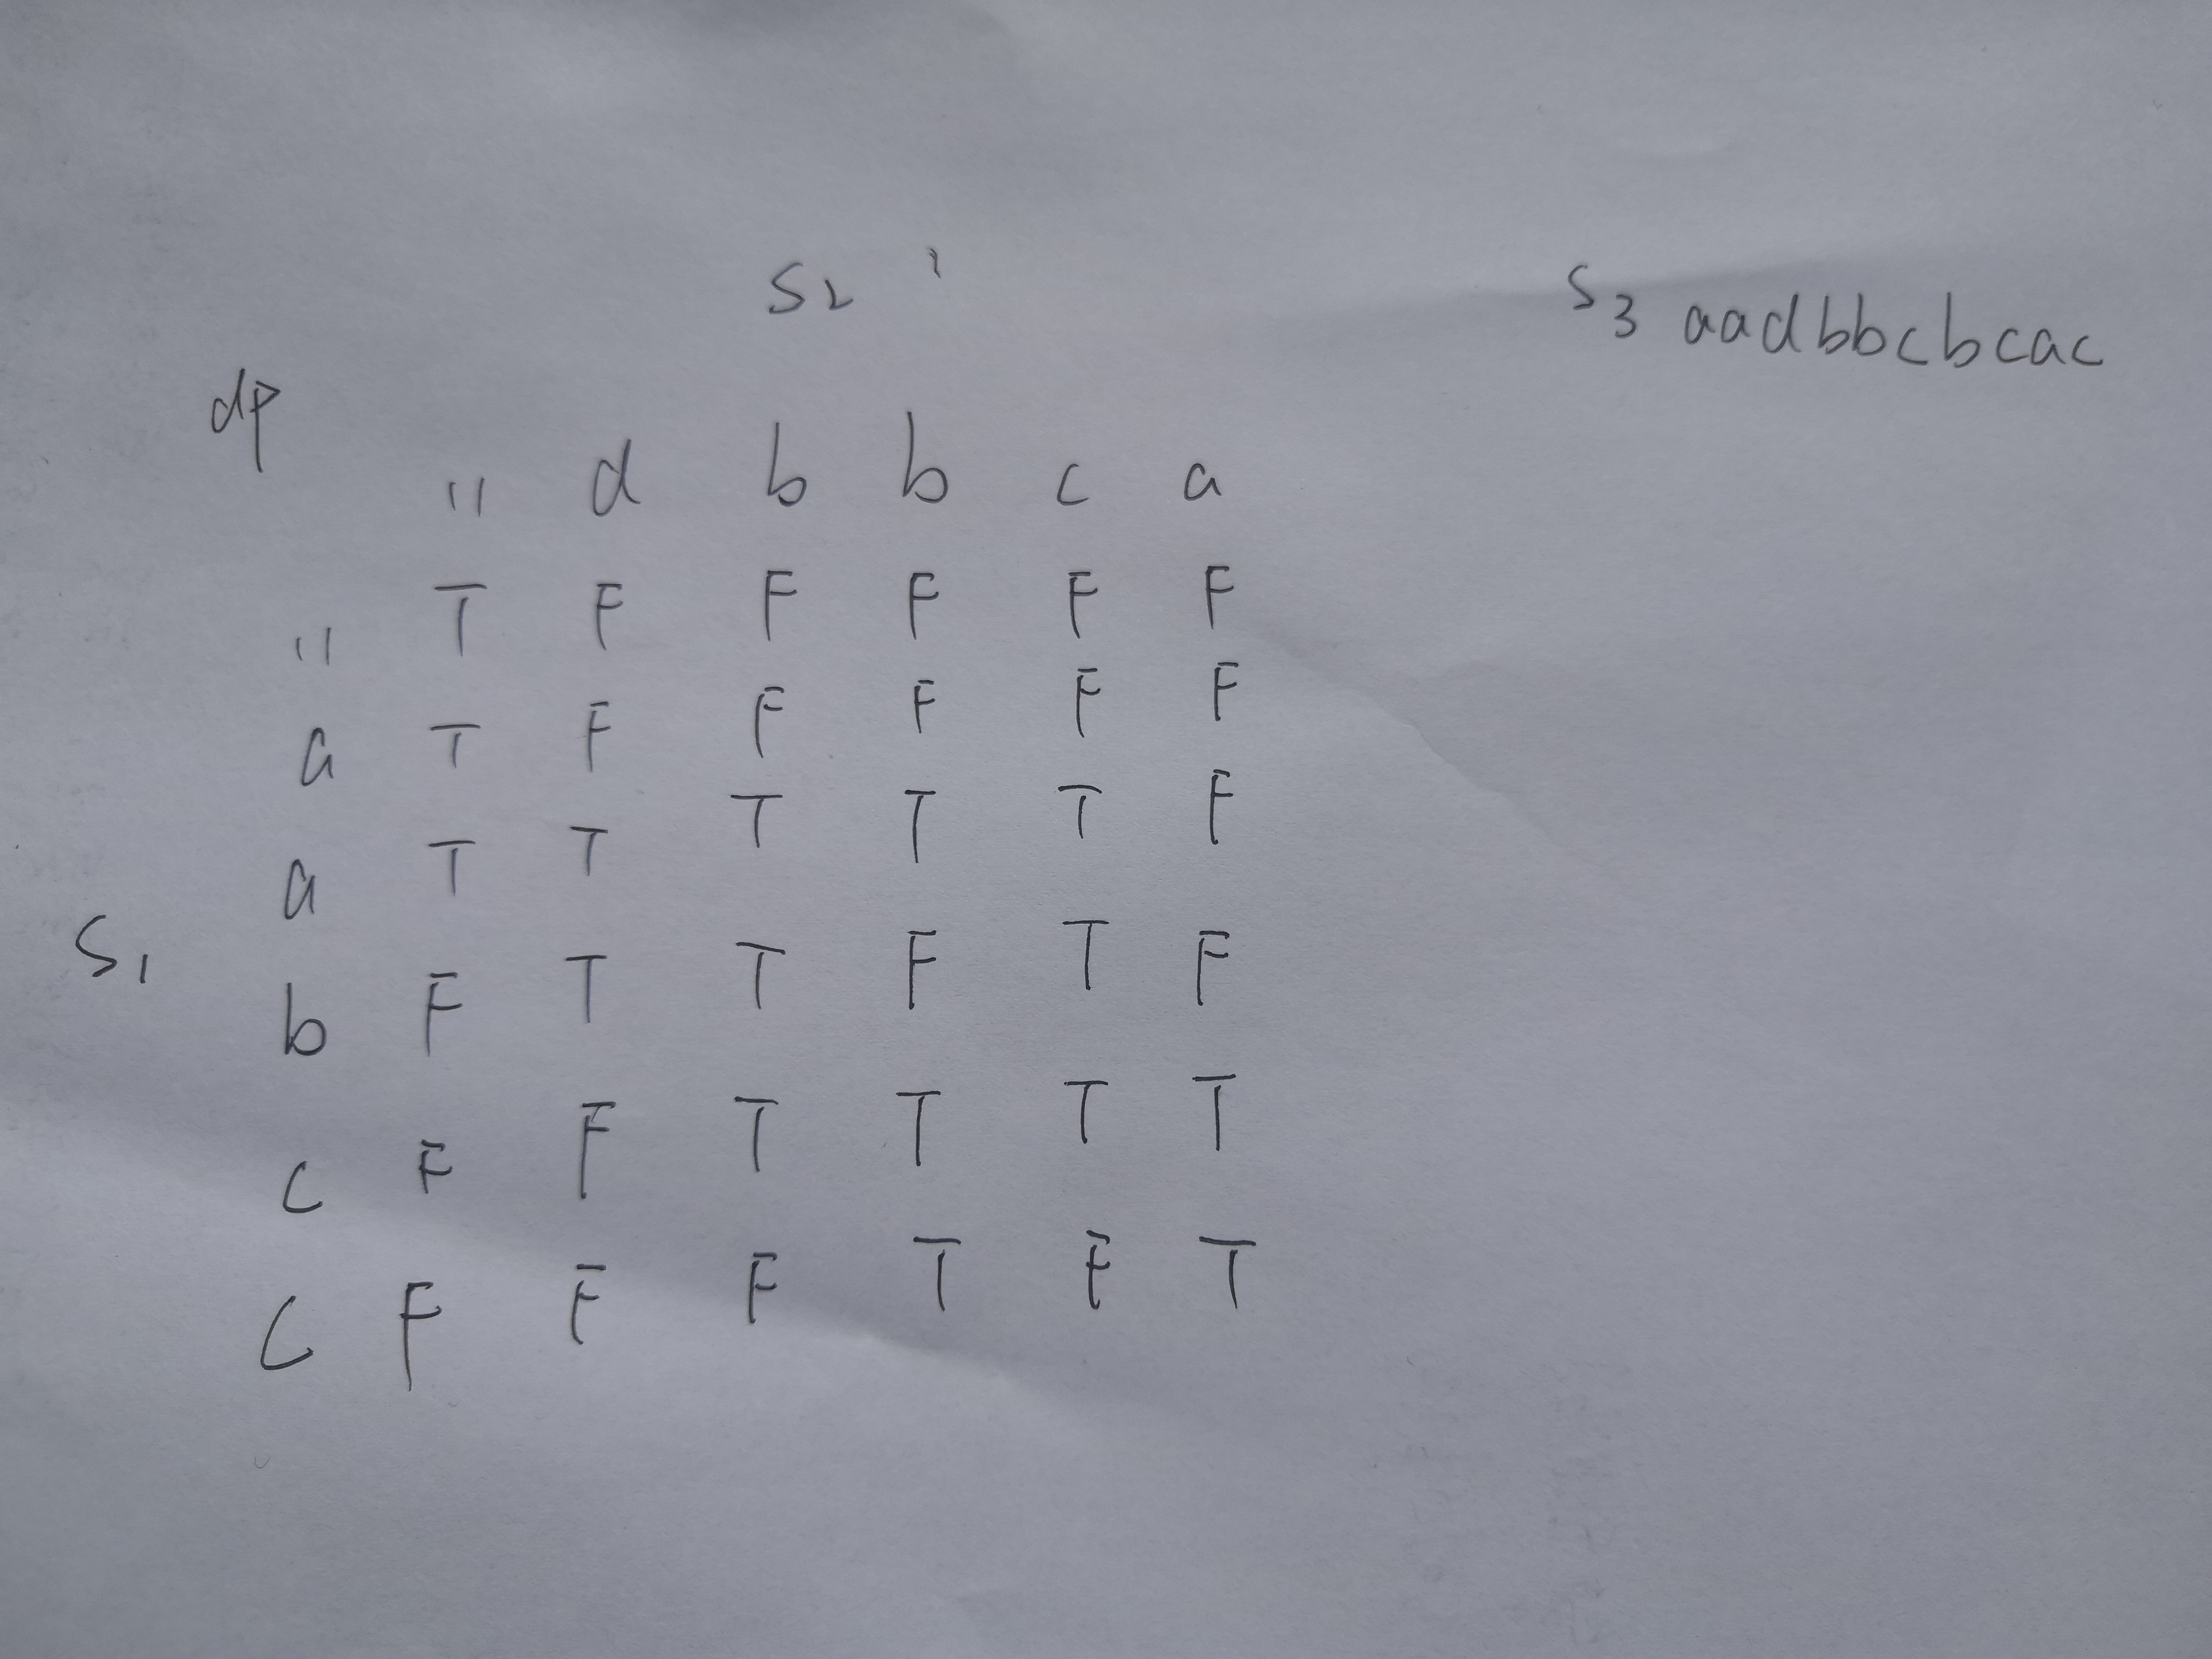 S2
S3 aadbbcbcac
dp
" d b b c a
" T F F F F F
a T F F F F F
a T T T T T F
S1
b F T T F T F
c F F T T T T
c F F F T F T